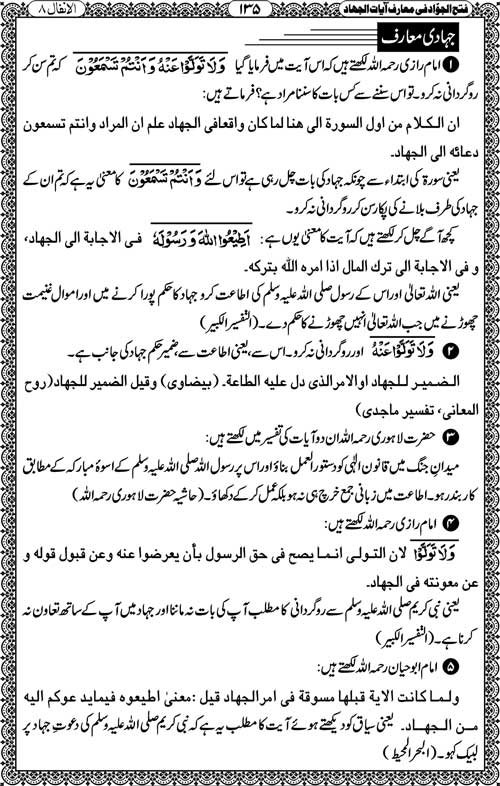 فتح الجوّاد فی معارف آیات الجهاد ۱۳۵ الانفال ۸
جہادی معارف
۱ امام رازی رحمہ اللہ لکھتے ہیں کہ اس آیت میں فرمایا گیا وَلَا تَوَلَّوْا عَنْهُ وَاَنْتُمْ تَسْمَعُوْنَ کہ تم سن کر
روگردانی نہ کرو۔ تو اس سننے سے کس بات کا سننا مراد ہے؟ فرماتے ہیں:
ان الکلام من اول السورة الی هنا لما کان واقعا فی الجهاد علم ان المراد وانتم تسمعون
دعائه الی الجهاد۔
یعنی سورۃ کی ابتداء سے چونکہ جہاد کی بات چل رہی ہے تو اس لئے وَاَنْتُمْ تَسْمَعُوْنَ کا معنٰی یہ ہے کہ تم ان کے
جہاد کی طرف بلانے کی پکار سن کر روگردانی نہ کرو۔
کچھ آگے چل کر لکھتے ہیں کہ آیت کا معنٰی یوں ہے: اَطِیْعُوا اللّٰهَ وَرَسُوْلَهٗ فی الاجابة الی الجهاد،
و فی الاجابة الی ترك المال اذا امره اللّٰه بتركه۔
یعنی اللہ تعالیٰ اور اس کے رسول صلی اللہ علیہ وسلم کی اطاعت کرو جہاد کا حکم پورا کرنے میں اور اموال غنیمت
چھوڑنے میں جب اللہ تعالیٰ انہیں چھوڑنے کا حکم دے۔ (التفسیر الکبیر)
۲ وَلَا تَوَلَّوْا عَنْهُ اور روگردانی نہ کرو۔ اس سے، یعنی اطاعت سے، ضمیر حکم جہاد کی جانب ہے۔
الضمیر للجهاد او الامر الذی دل علیه الطاعة۔ (بیضاوی) وقیل الضمیر للجهاد (روح
المعانی، تفسیر ماجدی)
۳ حضرت لاہوری رحمہ اللہ ان دو آیات کی تفسیر میں لکھتے ہیں:
میدانِ جنگ میں قانون الٰہی کو دستور العمل بناؤ اور اس پر رسول اللہ صلی اللہ علیہ وسلم کے اسوۂ مبارکہ کے مطابق
کاربند رہو۔ اطاعت میں زبانی جمع خرچ ہی نہ ہو بلکہ عمل کر کے دکھاؤ۔ (حاشیہ حضرت لاہوری رحمہ اللہ)
۴ امام رازی رحمہ اللہ لکھتے ہیں:
وَلَا تَوَلَّوْا لان التولی انما یصح فی حق الرسول بأن یعرضوا عنه وعن قبول قوله و
عن معونته فی الجهاد۔
یعنی نبی کریم صلی اللہ علیہ وسلم سے روگردانی کا مطلب آپ کی بات نہ ماننا اور جہاد میں آپ کے ساتھ تعاون نہ
کرنا ہے۔ (التفسیر الکبیر)
۵ امام ابوحیان رحمہ اللہ لکھتے ہیں:
ولما کانت الایة قبلها مسوقة فی امر الجهاد قیل: معنیٰ اطیعوه فیما ید عوکم الیه
من الجهاد۔ یعنی سیاق کو دیکھتے ہوئے آیت کا مطلب یہ ہے کہ نبی کریم صلی اللہ علیہ وسلم کی دعوتِ جہاد پر
لبیک کہو۔ (البحر المحیط)